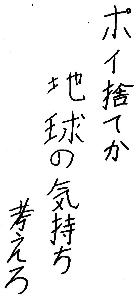 ポイ捨てか
地球の気持ち
考えろ